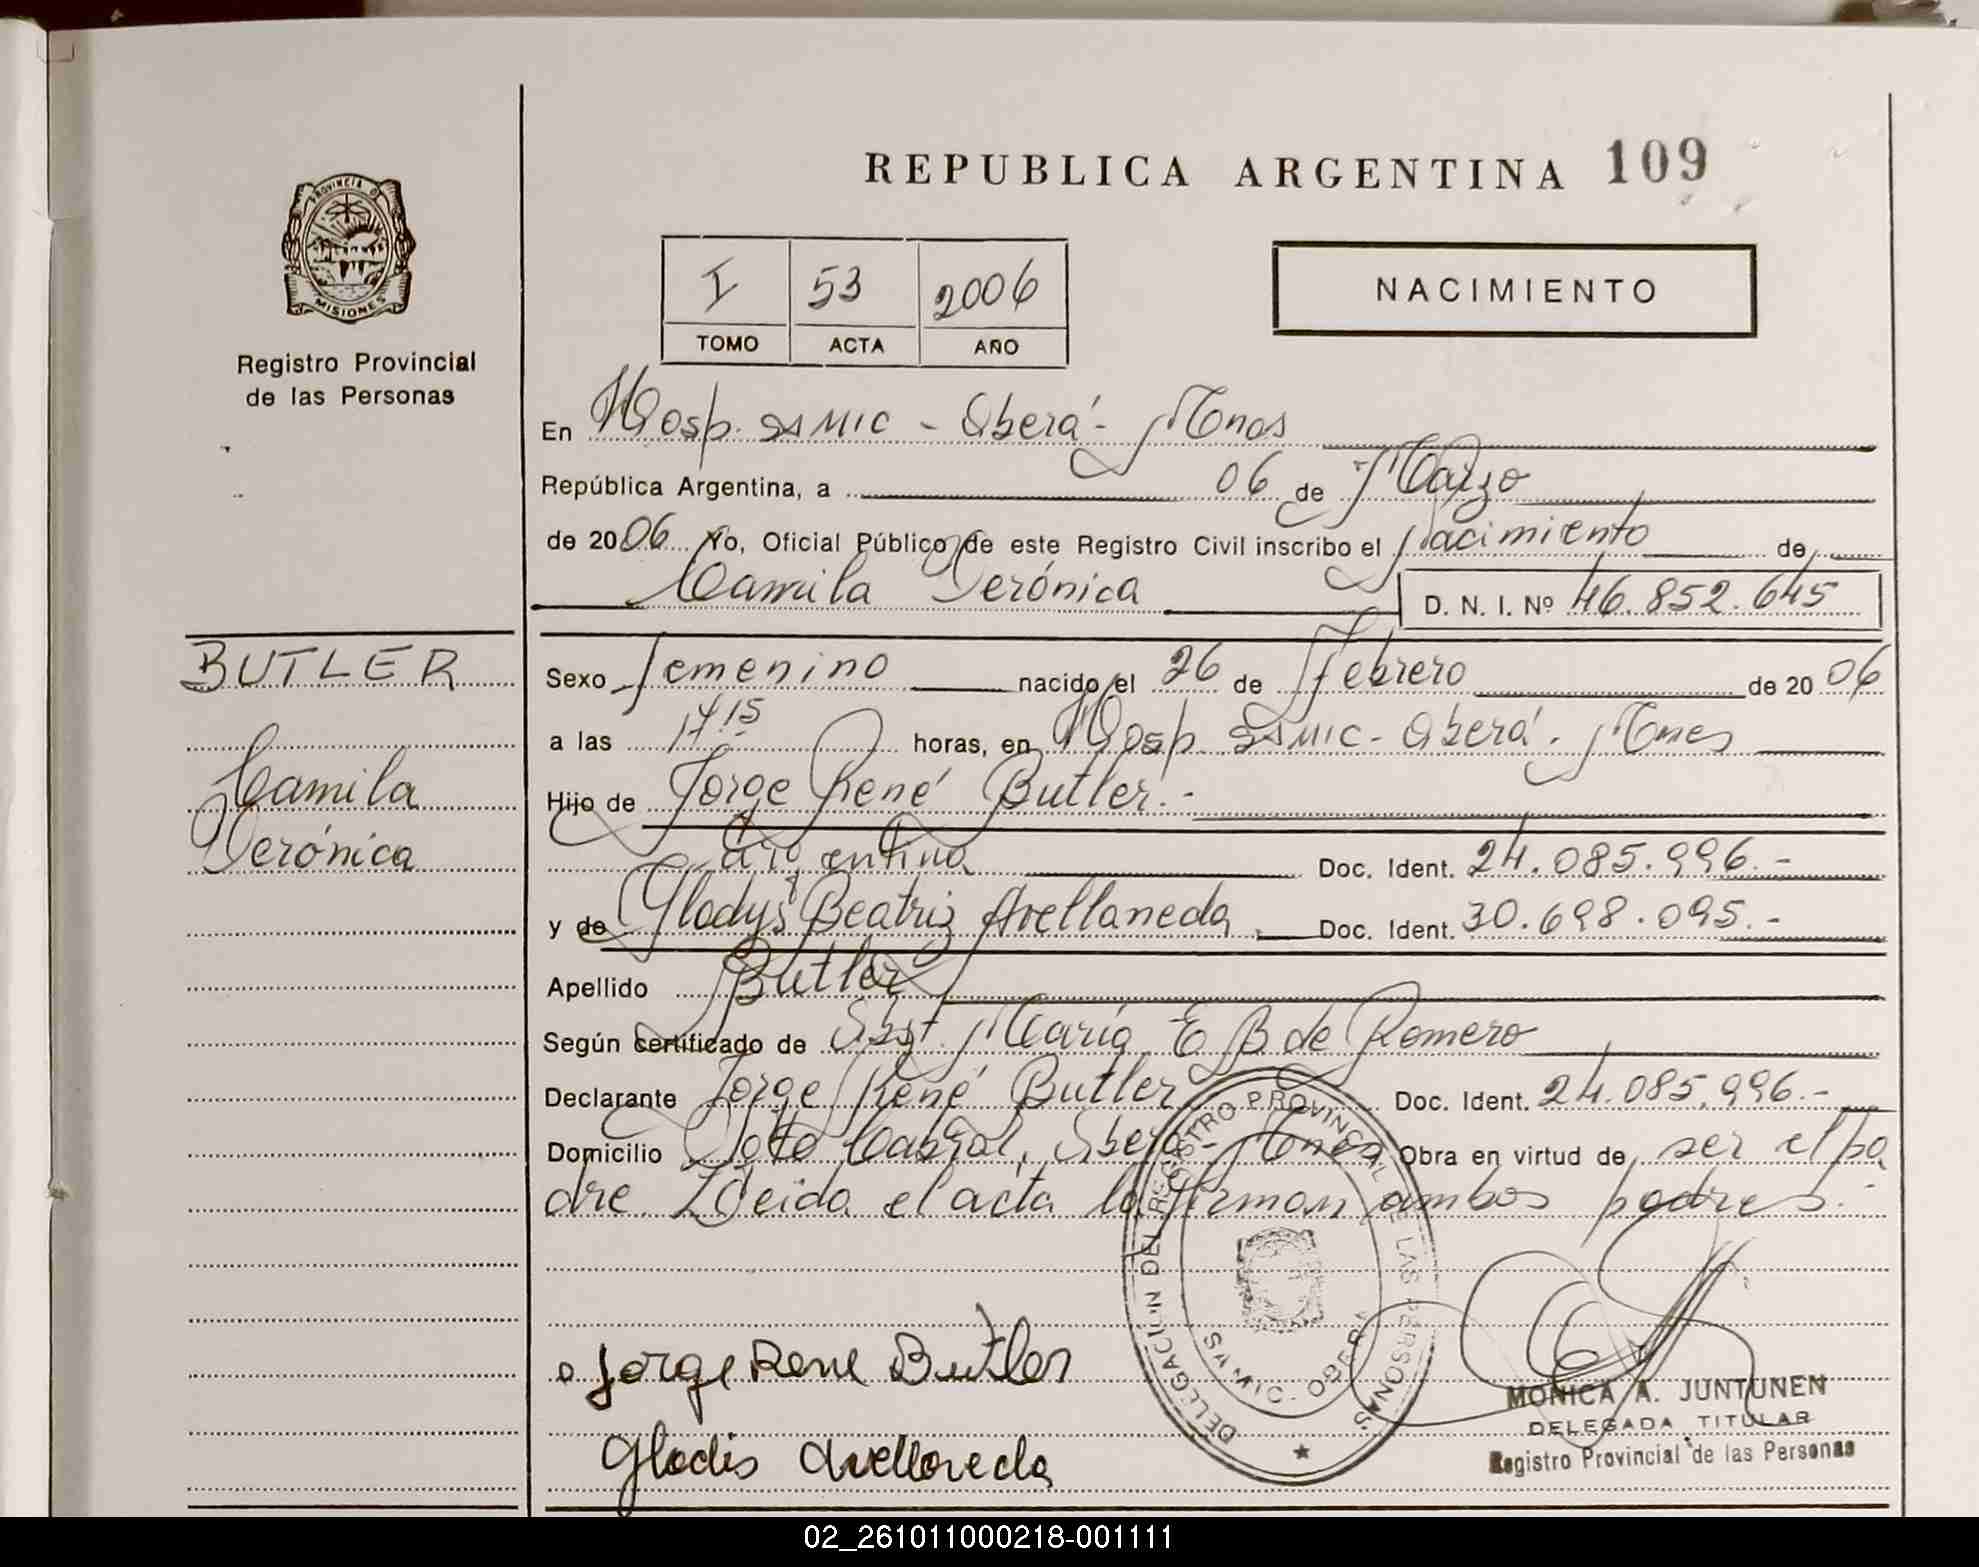 REPUBLICA ARGENTINA 109
PROVINCIA DE
MISIONES
Registro Provincial
de las Personas
I 53 2006
TOMO ACTA AÑO
NACIMIENTO
En Hosp. SAMIC - Oberá - Mnes
República Argentina, a 06 de Marzo
de 2006 Yo, Oficial Público de este Registro Civil inscribo el Nacimiento de
Camila Verónica D. N. I. Nº 46.852.645
BUTLER
Camila
Verónica
Sexo femenino nacido el 26 de Febrero de 2006
a las 17 15 horas, en Hosp. SAMIC - Oberá - Mnes
Hijo de Jorge René Butler.-
Argentina Doc. Ident. 24.085.996.-
y de Gladys Beatriz Avellaneda Doc. Ident. 30.698.095.-
Apellido Butler
Según certificado de Obst. María E B. de Romero
Declarante Jorge René Butler Doc. Ident. 24.085.996.-
Domicilio Cabral, Oberá - Mnes Obra en virtud de ser el pa
dre. Leida el acta la firman ambos padres.-
Jorge Rene Butler
Gladis Avellaneda
DELEGACION DEL REGISTRO PROVINCIAL DE LAS PERSONAS
SAMIC - OBERA
MONICA A. JUNTUNEN
DELEGADA TITULAR
Registro Provincial de las Personas
02_261011000218-001111